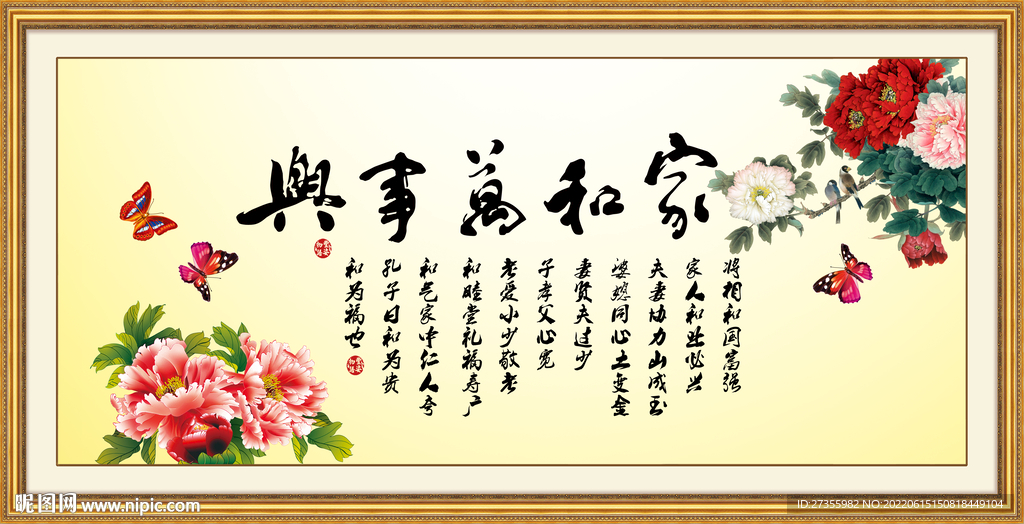 家和萬事興
将相和国富强
家人和业必兴
夫妻协力山成玉
婆媳同心土变金
妻贤夫过少
子孝父心宽
老爱小少敬老
和睦堂礼福寿广
和气家中仁人夸
孔子曰和为贵
和为福也
昵图网 www.nipic.com
ID:27355982 NO:20220615150818449104